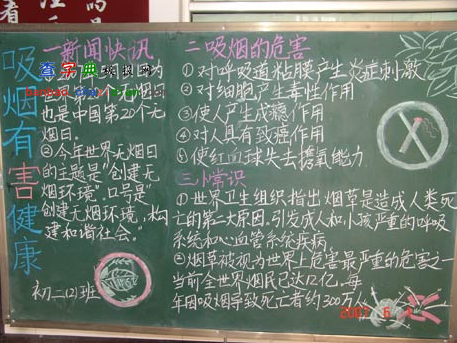 吸烟有害健康
一 新闻快讯
为
世界第20个无烟日
也是中国第20个无
烟日。
②今年世界无烟日
的主题是"创建无
烟环境"。口号是"
创建无烟环境，构
建和谐社会。"
初二(2)班
二 吸烟的危害
①对呼吸道粘膜产生炎症刺激
②对细胞产生毒性作用
③使人产生成瘾作用
④对人具有致癌作用
⑤使红血球失去携氧能力
三 小常识
①世界卫生组织指出烟草是造成人类死
亡的第二大原因,引发成人和小孩严重的呼吸
系统和心血管系统疾病。
②烟草被视为世界上危害最严重的危害之一
当前全世界烟民已达12亿,每
年因吸烟导致死亡者约300万人
查字典
2007 6